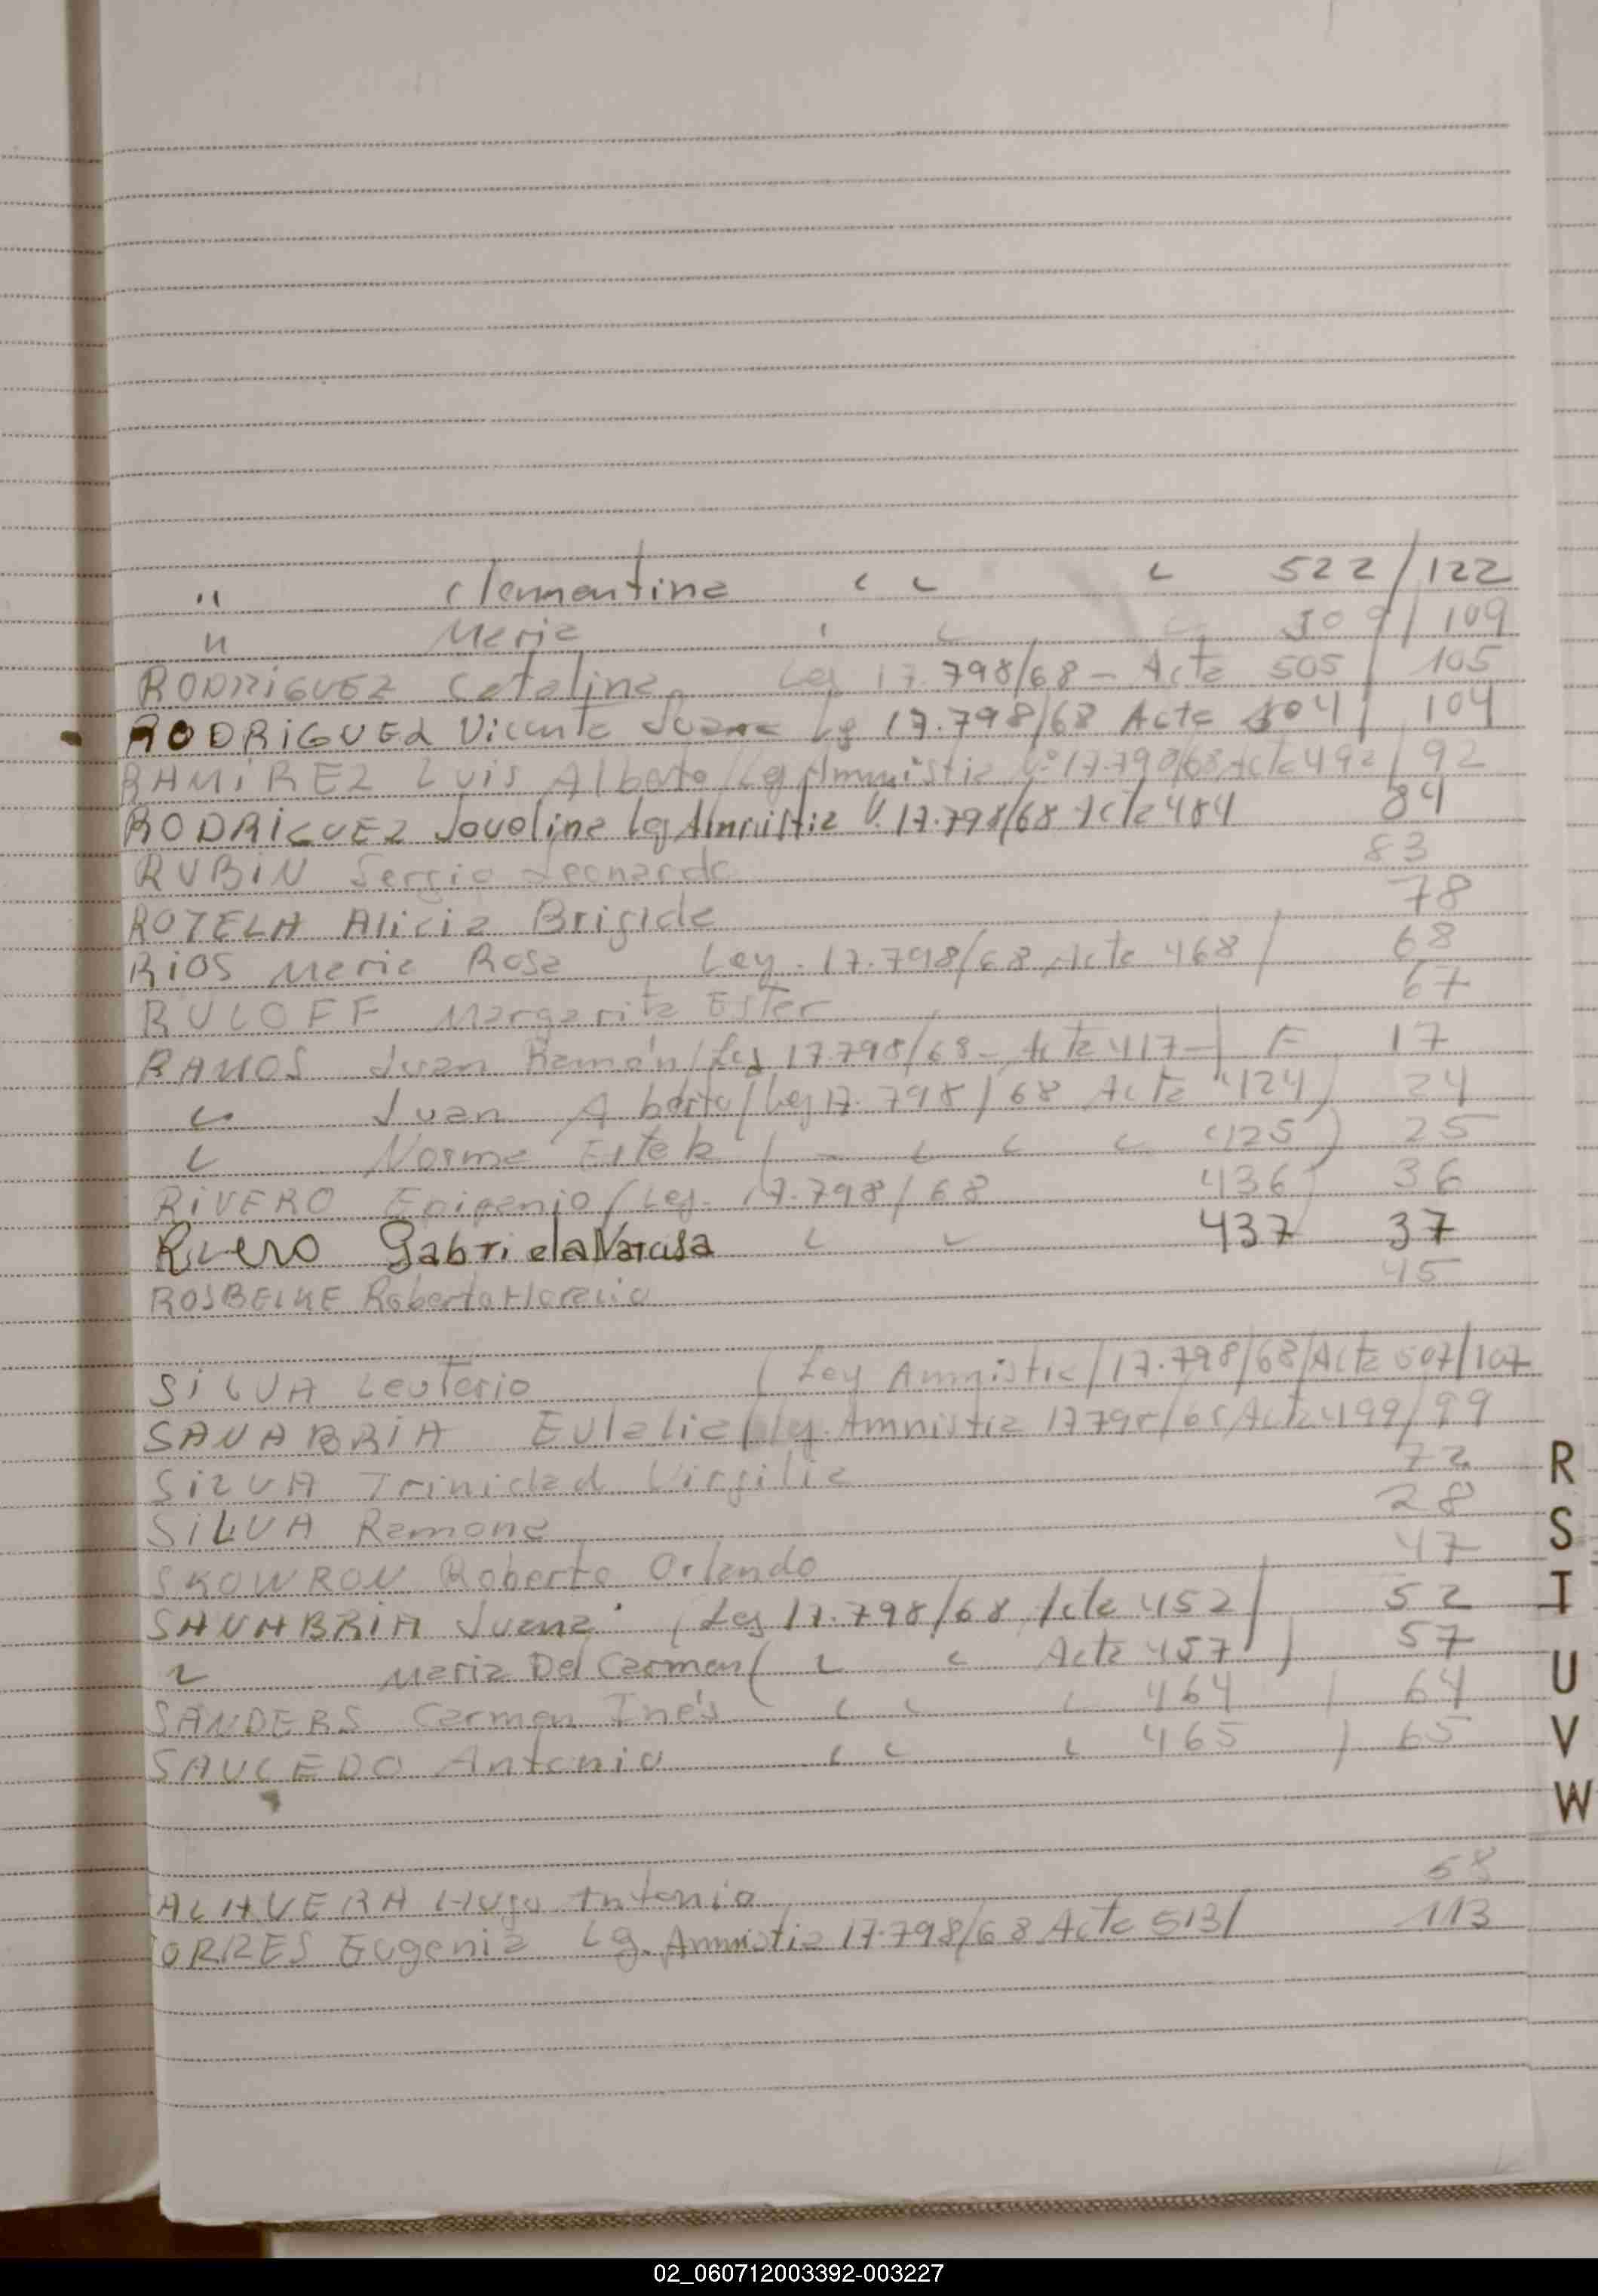 " Clementina " " " 522/122
" Maria " " " 509/109
RODRIGUEZ Catalina Ley 17.798/68 - Acta 505/ 105
RODRIGUEZ Vicenta Juana Ley 17.798/68 Acta 504/ 104
RAMIREZ Luis Alberto/Ley Amnistia Nº 17.798/68 Acta 492/ 92
RODRIGUEZ Jovelina Ley Amnistia 17.798/68 Acta 484 84
RUBIN Sergio Leonardo 83
ROTELA Alicia Brigida 78
RIOS Maria Rosa Ley. 17.798/68 Acta 468/ 68
RULOFF Margarita Ester 67
RAMOS Juan Ramón/Ley 17.798/68 - Acta 417 - / F 17
" Juan Alberto/Ley 17.798/68 Acta 424) 24
" Norma Estela / - " " " 425) 25
RIVERO Epigenio/Ley. 17.798/68 436) 36
Rivero Gabriela Narcisa " " 437 37
ROSBELKE Roberto Horacio 45
SILVA Leuterio / Ley Amnistia/17.798/68/Acta 507/107
SANABRIA Eulalia/Ley. Amnistia 17798/68/Acta 499/99
SILVA Trinidad Virgilia 72
SILVA Ramona 28
SKOWRON Roberto Orlando 47
SANABRIA Juana (Ley 17.798/68 Acta 452/ 52
" Maria Del Carmen( " " Acta 457 ) 57
SANDERS Carmen Inés " " " 464 / 64
SAUCEDO Antonio " " " 465 / 65
ALAVERA Hugo Antonio 58
ORRES Eugenia Ley. Amnistia 17.798/68 Acta 513/ 113
R
S
T
U
V
W
02_060712003392-003227